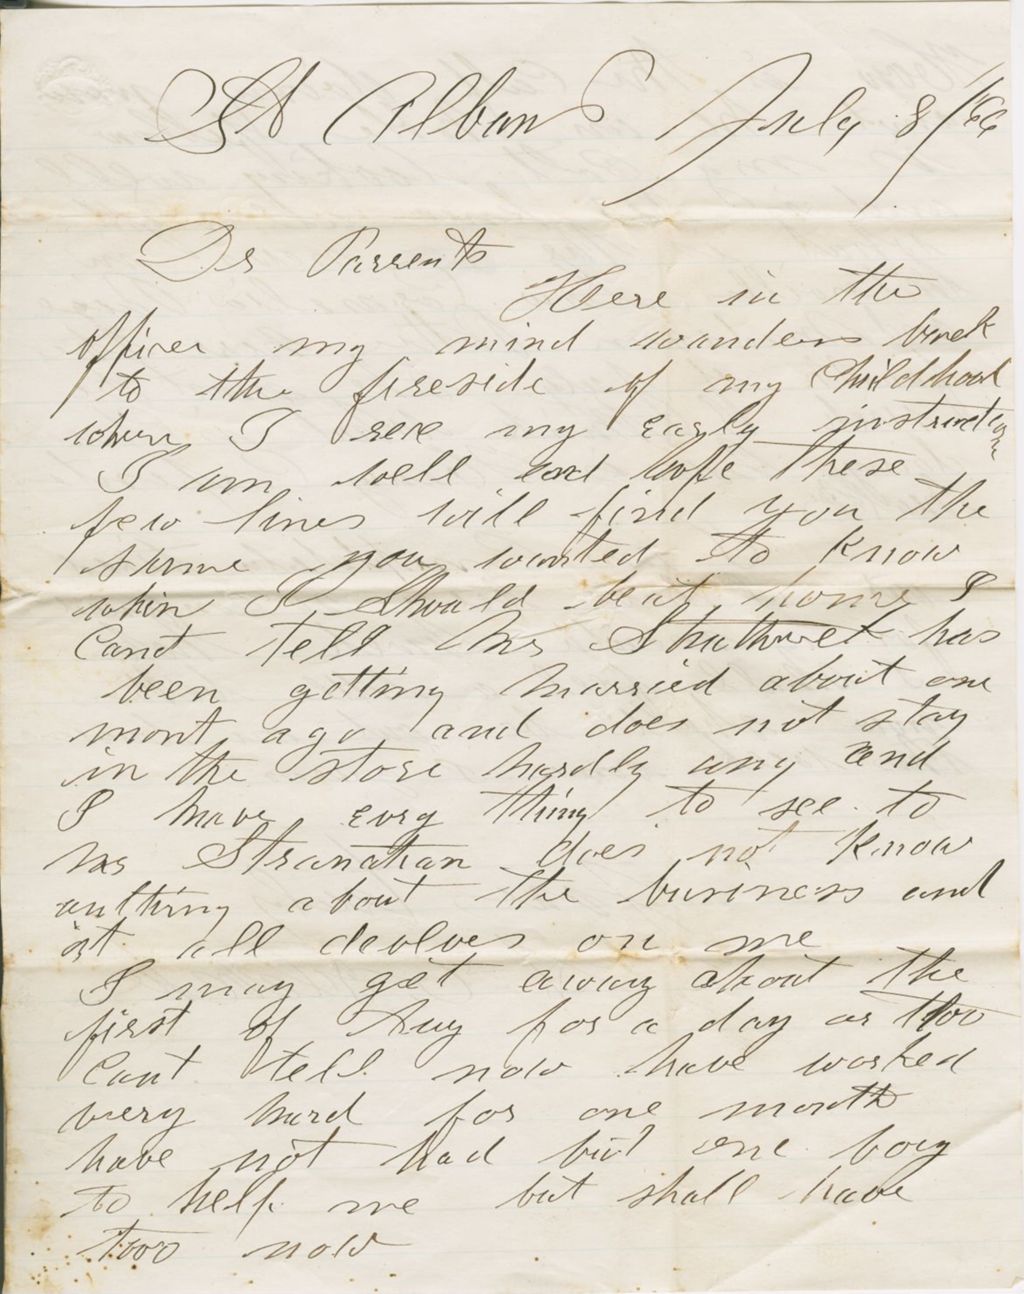 St Albans July 8/66
Dr Parrents
Here in the
office my mind wanders back
to the fireside of my Childhood
where I rece my early instruction
I am well and hope these
few lines will find you the
same you wanted to know
when I should be at home I
Cant tell Mr has
been getting married about one
mont ago and does not stay
in the store hardly any and
I have evry thing to see to
Mr Stranahan does not know
anthing about the business and
it all devolves on me
I may get away about the
first of Aug for a day or two
Cant tell now have worked
very hard for one month
have not had but one boy
to help me but shall have
two now